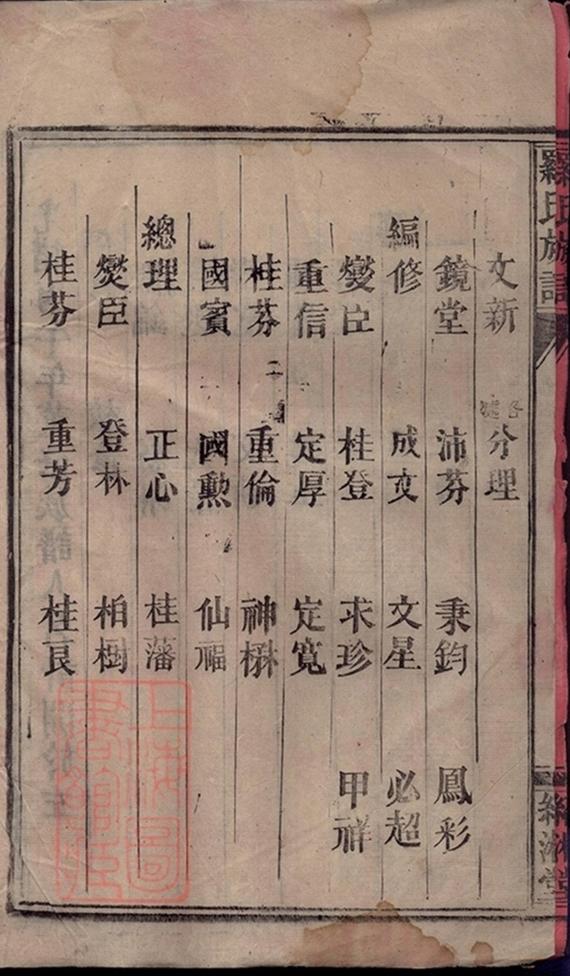 羅氏族譜
文新 分理
鏡堂 沛芬 秉鈞 鳳彩
編修 成文 文星 必超
燮臣 桂登 求珍 甲祥
重信 定厚 定寬
桂芬 重倫 神楙
國賓 國勲 仙福
總理 正心 桂藩
燮臣 登林 柏樹
桂芬 重芳 桂良
上海圖書館藏